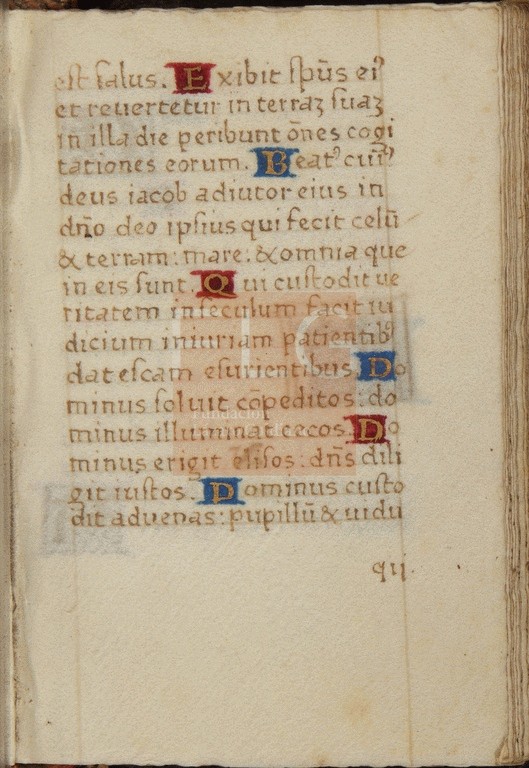 est salus. Exibit sp̄us ei⁹
et reuertetur in terraȝ suaȝ
in illa die peribunt ōnes cogi
tationes eorum. Beat⁹ cui⁹
deus iacob adiutor eius in
dn̄o deo ipsius qui fecit celū
& terram: mare: & omnia que
in eis sunt. Qui custodit ue
ritatem in seculum facit iu
dicium iniuriam patientib⁹
dat escam esurientibus. Do
minus soluit cōpeditos: do
minus illuminat cecos. Do
minus erigit elisos: dn̄s dili
git iustos. Dominus custo
dit aduenas: pupillū & uidu
qij
Fundación